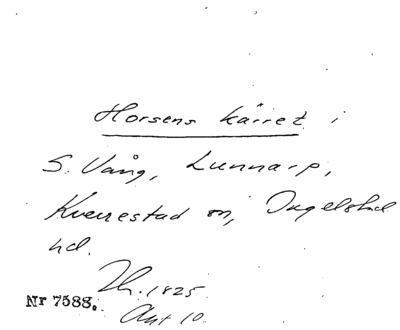 Horsens kärret i
S. Vång, Lunnarp,
Kverrestad sn, Ingelstad
hd.
Lh. 1825
Akt 10.
Nr 7588.